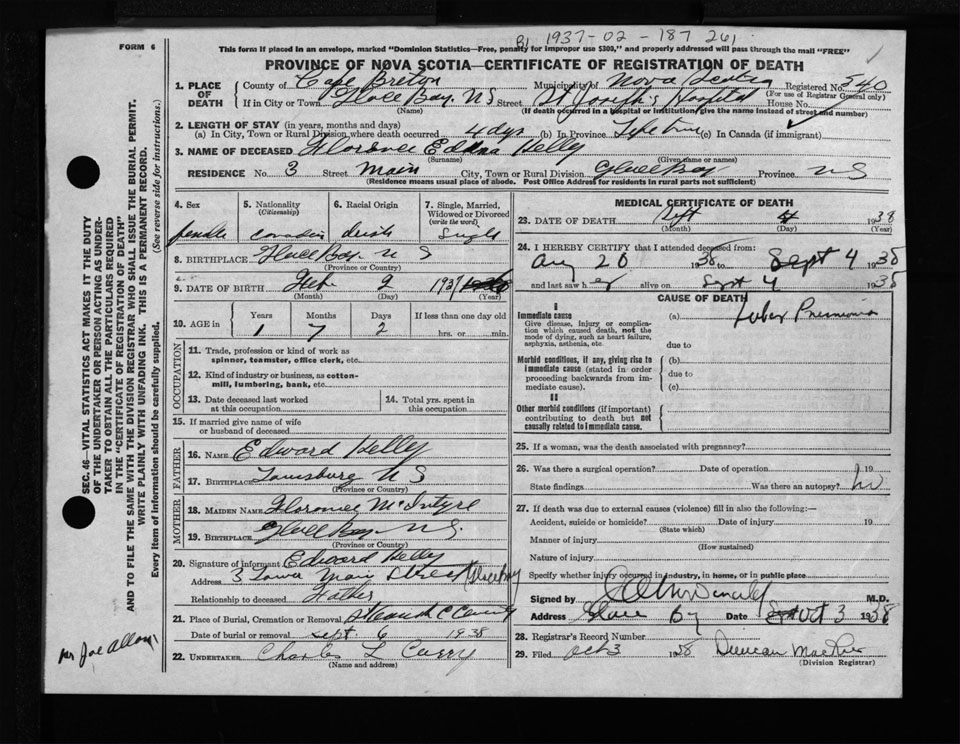 B) 1937-02-187261
FORM 6
This form if placed in an envelope, marked "Dominion Statistics—Free, penalty for improper use $300," and properly addressed will pass through the mail "FREE"
PROVINCE OF NOVA SCOTIA—CERTIFICATE OF REGISTRATION OF DEATH
1. PLACE OF DEATH
County of Cape Breton Municipality of Nova Scotia Registered No. 540
(For use of Registrar General only)
If in City or Town Glace Bay. N S Street St Joseph's Hospital House No.
(Name) (If death occurred in a hospital or institution give the name instead of street and number)
2. LENGTH OF STAY (in years, months and days)
(a) In City, Town or Rural Division where death occurred 4 dys (b) In Province Life time (c) In Canada (if immigrant)
3. NAME OF DECEASED Florence Edna Kelly
(Surname) (Given name or names)
RESIDENCE No. 3 Street Main City, Town or Rural Division Glace Bay Province N S
(Residence means usual place of abode. Post Office Address for residents in rural parts not sufficient)
4. Sex female
5. Nationality (Citizenship) Canadian
6. Racial Origin Irish
7. Single, Married, Widowed or Divorced (write the word) Single
8. BIRTHPLACE Glace Bay N S
(Province or Country)
9. DATE OF BIRTH Feb 2 1937
(Month) (Day) (Year)
10. AGE in Years Months Days If less than one day old
1 7 2 hrs. or min.
OCCUPATION
11. Trade, profession or kind of work as spinner, teamster, office clerk, etc.
12. Kind of industry or business, as cotton-mill, lumbering, bank, etc.
13. Date deceased last worked at this occupation
14. Total yrs. spent in this occupation
15. If married give name of wife or husband of deceased
FATHER
16. NAME Edward Kelly
17. BIRTHPLACE Louisburg N S
(Province or Country)
MOTHER
18. MAIDEN NAME Florence McIntyre
19. BIRTHPLACE Glace Bay N S.
(Province or Country)
20. Signature of informant Edward Kelly
Address 3 Lower Main Street Glace Bay
Relationship to deceased Father
21. Place of Burial, Cremation or Removal
Date of burial or removal Sept. 6 1938
22. UNDERTAKER Charles L Curry
(Name and address)
MEDICAL CERTIFICATE OF DEATH
23. DATE OF DEATH Sept 4 1938
(Month) (Day) (Year)
24. I HEREBY CERTIFY that I attended deceased from:
Aug 20 1938 to Sept 4 1938
and last saw h er alive on Sept 4 1938
CAUSE OF DEATH
I
Immediate cause
Give disease, injury or complication which caused death, not the mode of dying, such as heart failure, asphyxia, asthenia, etc.
(a) Lobar Pneumonia
due to
Morbid conditions, if any, giving rise to immediate cause (stated in order proceeding backwards from immediate cause).
(b)
due to
(c)
II
Other morbid conditions (if important) contributing to death but not causally related to immediate cause.
25. If a woman, was the death associated with pregnancy?
26. Was there a surgical operation? Date of operation 19
State findings Was there an autopsy? No
27. If death was due to external causes (violence) fill in also the following:—
Accident, suicide or homicide? Date of injury 19
(State which)
Manner of injury
(How sustained)
Nature of injury
Specify whether injury occurred in industry, in home, or in public place
Signed by M.D.
Address Glace Bay Date Oct 3 1938
28. Registrar's Record Number
29. Filed Oct 3 1938 Duncan
(Division Registrar)
SEC. 46—VITAL STATISTICS ACT MAKES IT THE DUTY
OF THE UNDERTAKER OR PERSON ACTING AS UNDER-
TAKER TO OBTAIN ALL THE PARTICULARS REQUIRED
IN THE "CERTIFICATE OF REGISTRATION OF DEATH"
AND TO FILE THE SAME WITH THE DIVISION REGISTRAR WHO SHALL ISSUE THE BURIAL PERMIT.
WRITE PLAINLY WITH UNFADING INK. THIS IS A PERMANENT RECORD.
Every item of information should be carefully supplied. (See reverse side for instructions.)
per Joe Allan